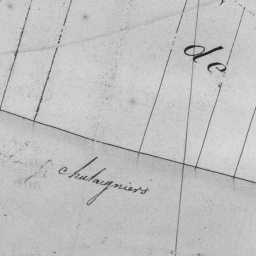 de
chataigniers